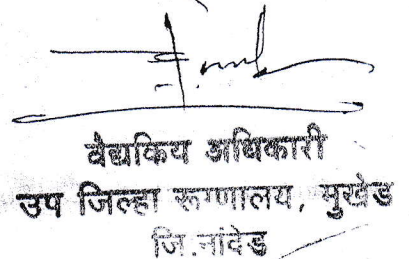 वैद्यकिय अधिकारी
उप जिल्हा रूग्णालय, मुखेड
जि.नांदेड